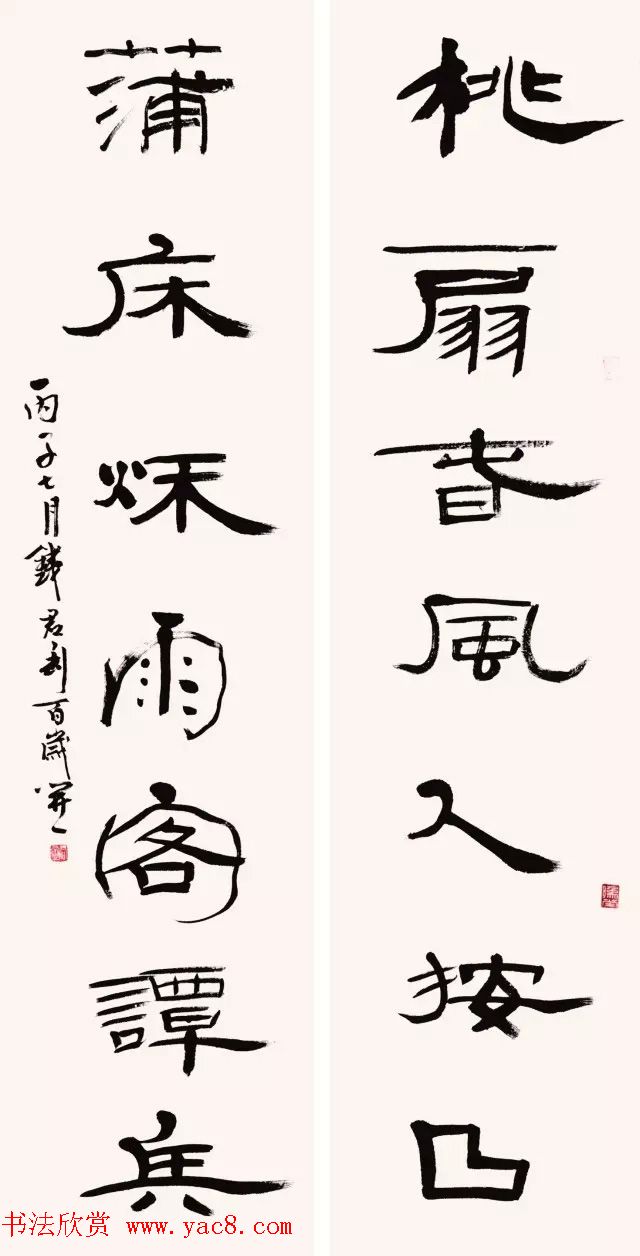 桃扇春風人按曲
蒲床秋雨客譚兵
丙子七月錢君匋百歲開一
书法欣赏 www.yac8.com